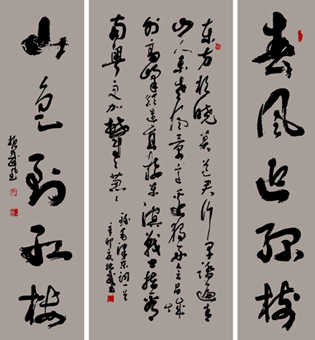 春風
东方欲晓莫道君行早踏遍青
山人未老风景这边独好会昌城
外高峰颠连直接东溟战士指看
南粤更加郁郁葱葱
录毛泽东词一首
辛卯
山色到